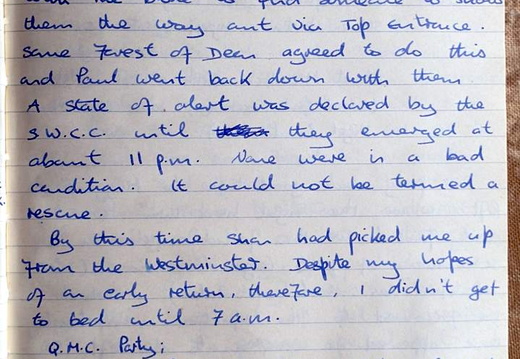 them the way out via Top Entrance.
Some Forest of Dean agreed to do this
and Paul went back down with them
A state of alert was declared by the
S.W.C.C. until they emerged at
about 11 p.m. None were in a bad
condition. It could not be termed a
rescue.
By this time Stan had picked me up
from the Westminster. Despite my hopes
of an early return, therefore, I didn't get
to bed until 7 a.m.
Q.M.C. Party;